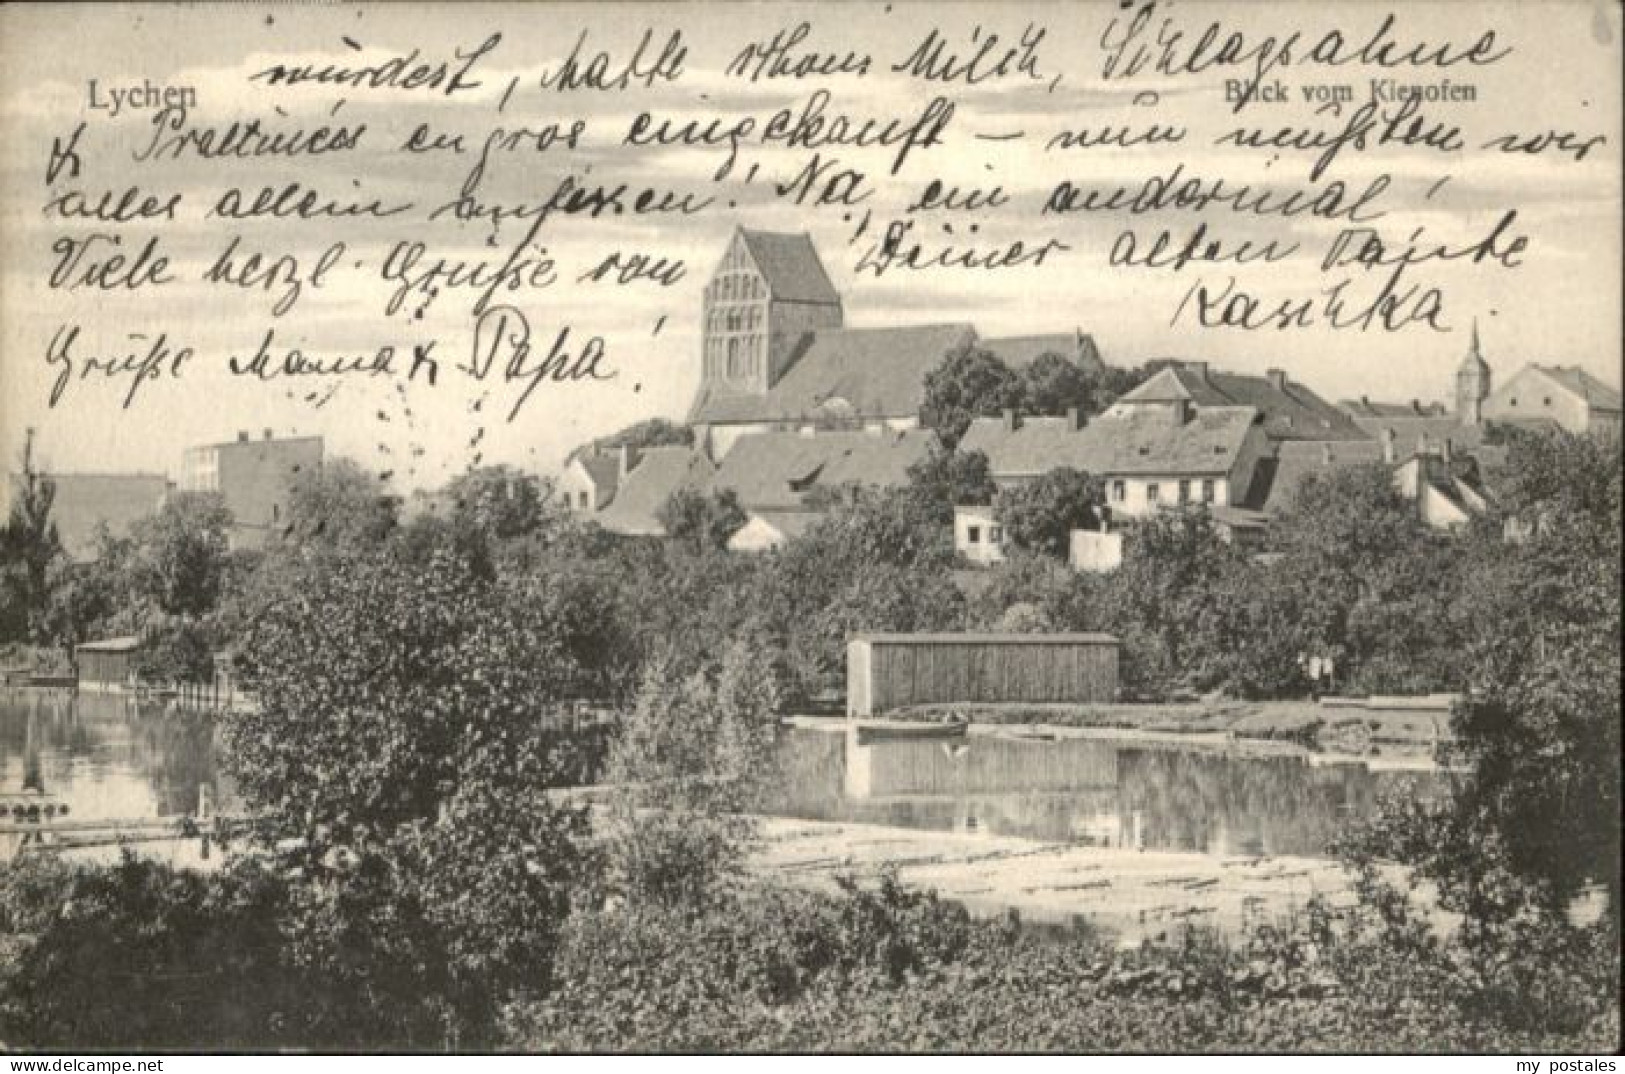 Lychen
Blick vom Kienofen
würdest, hatte schon Milch, Schlagsahne
& Pralinées en gros eingekauft — nun mußten wir
alles allein aufessen! Na, ein andermal!
Viele herzl. Grüße von Deiner alten Tante
Kaschka.
Grüße Mama & Papa!
Lychen
my_postales